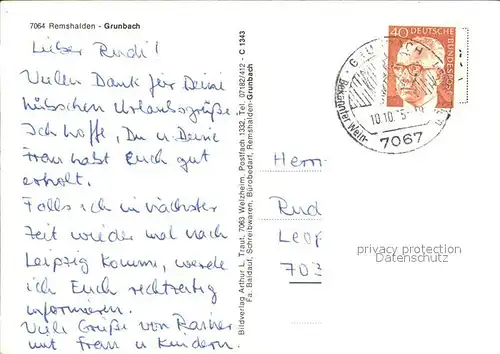 7064 Remshalden - Grunbach
Lieber Rudi!
Vielen Dank für Deine
hübschen Urlaubsgrüße.
Ich hoffe, Du u. Deine
Frau habt Euch gut
erholt.
Falls ich in nächster
Zeit wieder mal nach
Leipzig komme, werde
ich Euch rechtzeitig
informieren.
Viele Grüße von Rainer
mit Frau u. Kindern.
C 1343
Bildverlag Arthur L. Traut, 7063 Welzheim, Postfach 1332, Tel. 07182/412
Fa. Baldauf, Schreibwaren, Bürobedarf, Remshalden-Grunbach
40
DEUTSCHE
BUNDESPOST
Bekannter Wein-
10.10.
7067
Herrn
Rud
Leip
703
privacy protection
Datenschutz